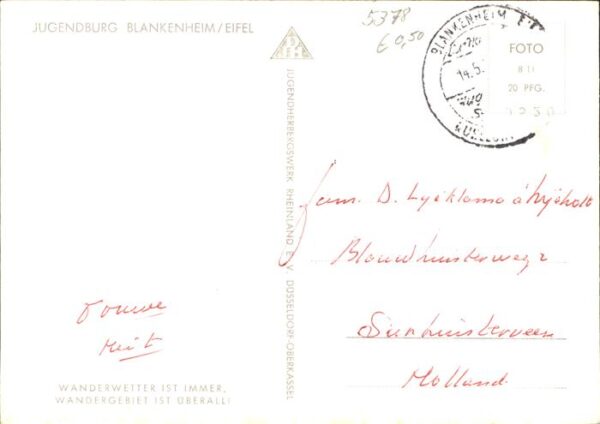 JUGENDBURG BLANKENHEIM/EIFEL
5378
€ 0,50
BLANKENHEIM
14.5.
FOTO
8 11
20 PFG.
JUGENDHERBERGSWERK RHEINLAND E. V. DÜSSELDORF-OBERKASSEL
Fam. D. Lycklama á Nijeholt
Blauwhuisterweg 2
Sint
Holland
Douwe
WANDERWETTER IST IMMER,
WANDERGEBIET IST ÜBERALL!